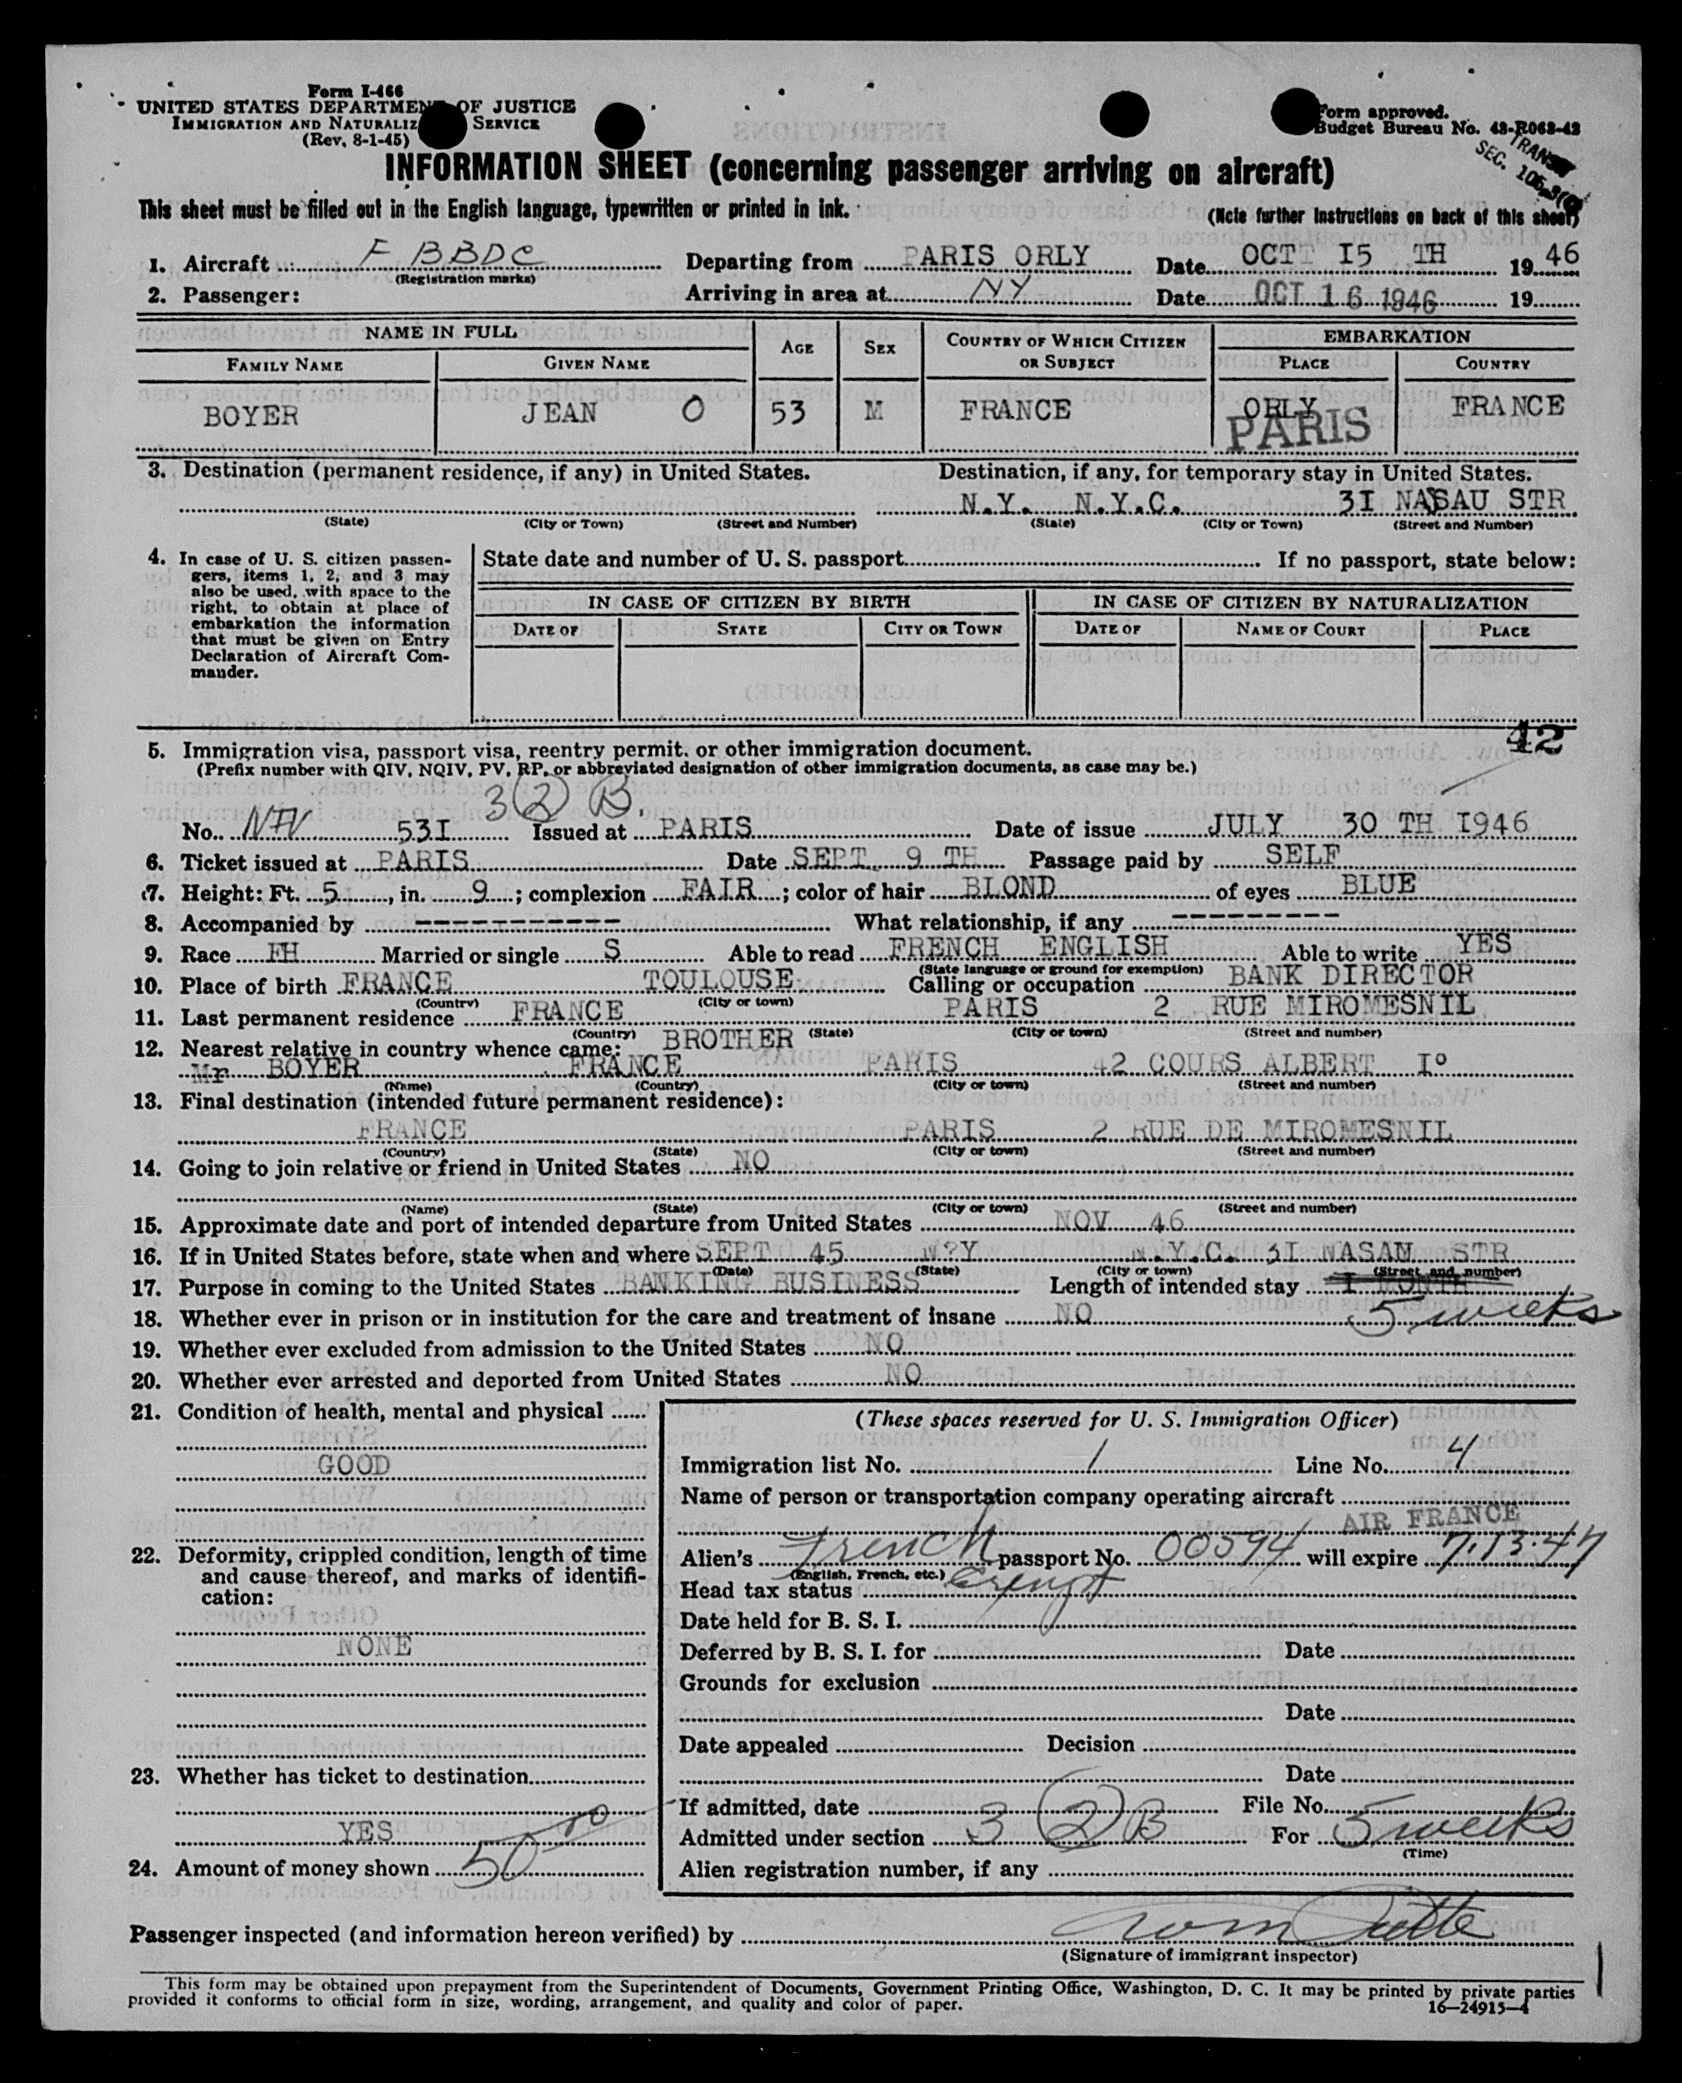 Form I-466
UNITED STATES DEPARTMENT OF JUSTICE
IMMIGRATION AND NATURALIZ SERVICE
(Rev. 8-1-45)
Form approved.
Budget Bureau No. 43-R063-42
TRANSIT
SEC.
INFORMATION SHEET (concerning passenger arriving on aircraft)
This sheet must be filled out in the English language, typewritten or printed in ink.
(Note further instructions on back of this sheet)
1. Aircraft F BBDC Departing from PARIS ORLY Date OCT 15 TH 1946
(Registration marks)
2. Passenger: Arriving in area at NY Date OCT 16 1946 19
NAME IN FULL AGE SEX COUNTRY OF WHICH CITIZEN OR SUBJECT EMBARKATION
FAMILY NAME GIVEN NAME PLACE COUNTRY
BOYER JEAN O 53 M FRANCE ORLY FRANCE
PARIS
3. Destination (permanent residence, if any) in United States. Destination, if any, for temporary stay in United States.
N.Y. N.Y.C. 3I NASSAU STR
(State) (City or Town) (Street and Number) (State) (City or Town) (Street and Number)
4. In case of U. S. citizen passengers, items 1, 2, and 3 may also be used, with space to the right, to obtain at place of embarkation the information that must be given on Entry Declaration of Aircraft Commander.
State date and number of U. S. passport If no passport, state below:
IN CASE OF CITIZEN BY BIRTH IN CASE OF CITIZEN BY NATURALIZATION
DATE OF STATE CITY OR TOWN DATE OF NAME OF COURT PLACE
42
5. Immigration visa, passport visa, reentry permit, or other immigration document.
(Prefix number with QIV, NQIV, PV, RP, or abbreviated designation of other immigration documents, as case may be.)
3 (2) B.
No. 53I Issued at PARIS Date of issue JULY 30 TH I946
6. Ticket issued at PARIS Date SEPT 9 TH Passage paid by SELF
7. Height: Ft. 5, in. 9; complexion FAIR; color of hair BLOND of eyes BLUE
8. Accompanied by ----------- What relationship, if any ---------
9. Race FH Married or single S Able to read FRENCH ENGLISH Able to write YES
(State language or ground for exemption)
10. Place of birth FRANCE TOULOUSE Calling or occupation BANK DIRECTOR
(Country) (City or town)
11. Last permanent residence FRANCE PARIS 2 RUE MIROMESNIL
(Country) (State) (City or town) (Street and number)
12. Nearest relative in country whence came: BROTHER
Mr BOYER FRANCE PARIS 42 COURS ALBERT I°
(Name) (Country) (City or town) (Street and number)
13. Final destination (intended future permanent residence):
FRANCE PARIS 2 RUE DE MIROMESNIL
(Country) (State) (City or town) (Street and number)
14. Going to join relative or friend in United States NO
(Name) (State) (City or town) (Street and number)
15. Approximate date and port of intended departure from United States NOV 46
16. If in United States before, state when and where SEPT 45 N?Y N.Y.C. 3I NASAM STR
(Date) (State) (City or town) (Street and number)
17. Purpose in coming to the United States BANKING BUSINESS Length of intended stay I MONTH
5 weeks
18. Whether ever in prison or in institution for the care and treatment of insane NO
19. Whether ever excluded from admission to the United States NO
20. Whether ever arrested and deported from United States NO
21. Condition of health, mental and physical
GOOD
22. Deformity, crippled condition, length of time and cause thereof, and marks of identification:
NONE
23. Whether has ticket to destination
YES
24. Amount of money shown 50 00
(These spaces reserved for U. S. Immigration Officer)
Immigration list No. 1 Line No. 4
Name of person or transportation company operating aircraft
AIR FRANCE
Alien's French passport No. 00594 will expire 7-13-47
(English, French, etc.)
Head tax status Exempt
Date held for B. S. I.
Deferred by B. S. I. for Date
Grounds for exclusion
Date
Date appealed Decision
Date
If admitted, date File No.
Admitted under section 3 (2) B For 5 weeks
(Time)
Alien registration number, if any
Passenger inspected (and information hereon verified) by
(Signature of immigrant inspector)
This form may be obtained upon prepayment from the Superintendent of Documents, Government Printing Office, Washington, D. C. It may be printed by private parties
provided it conforms to official form in size, wording, arrangement, and quality and color of paper.
16—24915-4